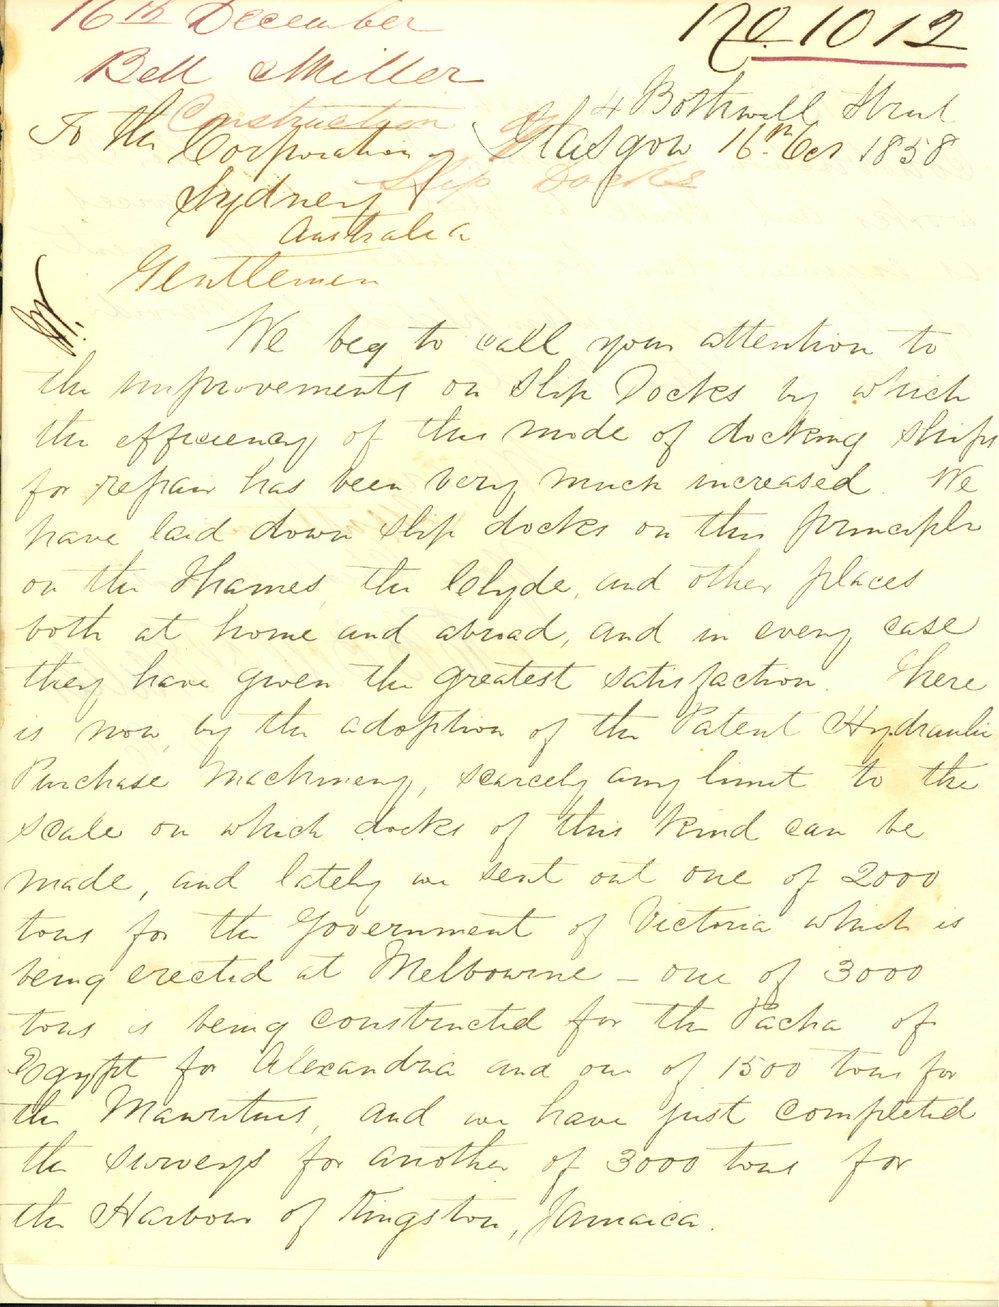 16th December
No. 1012
Bell & Miller
Construction of
Slip Docks
4 Bothwell Street
Glasgow 16th Oct 1858
To the Corporation of
Sydney
Australia
Gentlemen
We beg to call your attention to
the improvements on Slip Docks by which
the efficiency of this mode of docking ships
for repair has been very much increased. We
have laid down slip docks on this principle
on the Thames, the Clyde, and other places
both at home and abroad, and in every case
they have given the greatest satisfaction. There
is now, by the adoption of the Patent Hydraulic
Purchase Machinery, scarcely any limit to the
scale on which docks of this kind can be
made, and lately we sent out one of 2000
tons for the Government of Victoria which is
being erected at Melbourne – one of 3000
tons is being constructed for the Pacha of
Egypt for Alexandria and one of 1500 tons for
the Mauritius, and we have just completed
the surveys for another of 3000 tons for
the Harbour of Kingston, Jamaica.